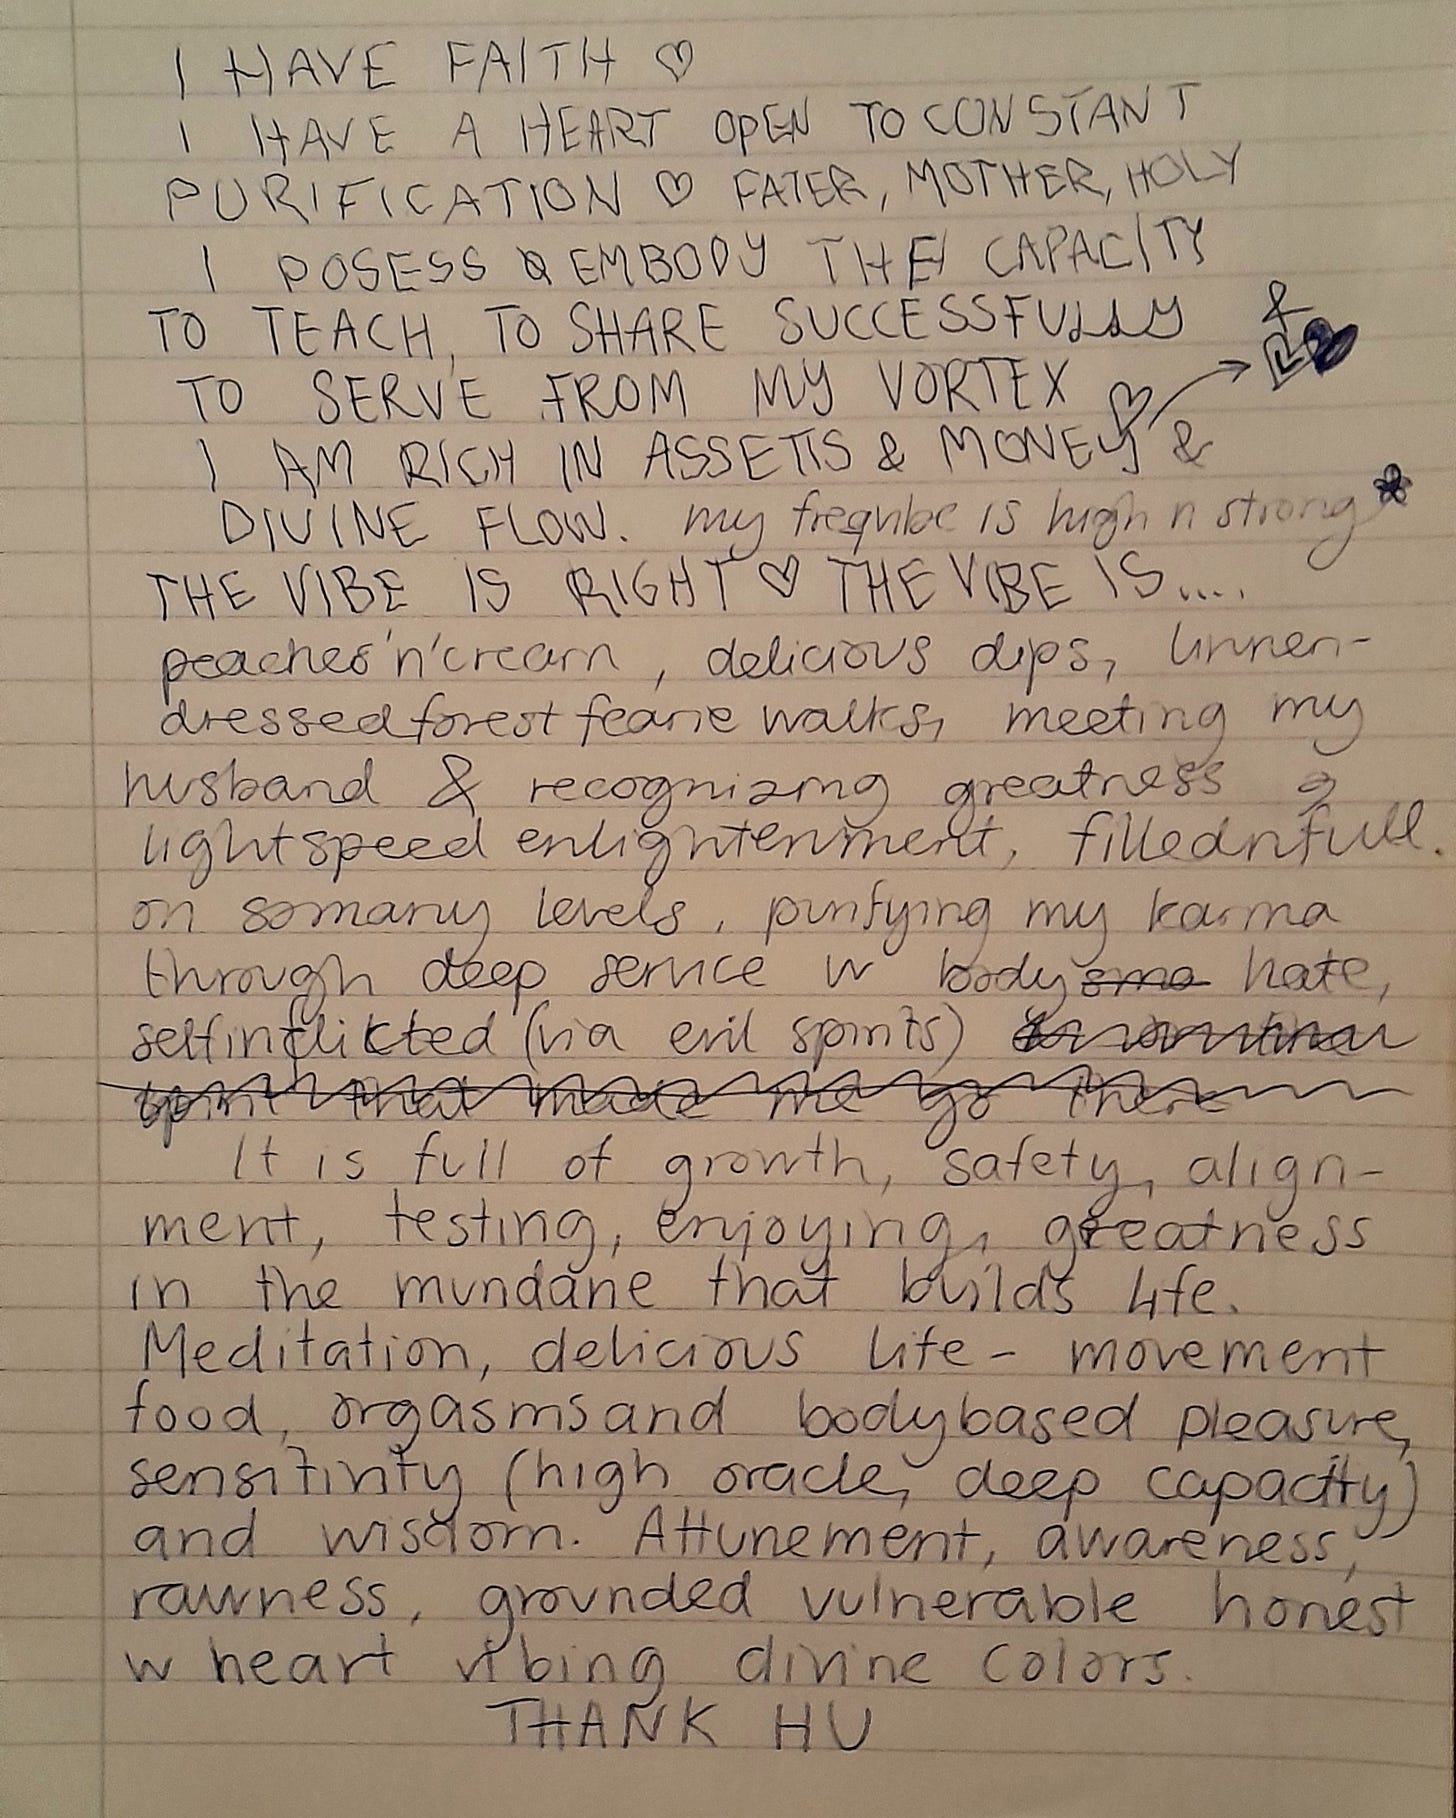 I HAVE FAITH ♡
I HAVE A HEART OPEN TO CONSTANT
PURIFICATION ♡ FATER, MOTHER, HOLY
I POSESS & EMBODY THE CAPACITY
TO TEACH, TO SHARE SUCCESSFULLY &
TO SERVE FROM MY VORTEX
I AM RICH IN ASSETTS & MONEY &
DIVINE FLOW. my freqvibe is high n strong*
THE VIBE IS RIGHT ♡ THE VIBE IS....
peaches'n'cream, delicious dips, linnen-
dressed forest fearie walks, meeting my
husband & recognizing greatness &
lightspeed enlightenment, filled n full.
on so many levels, purifying my karma
through deep service w body hate,
selfinflicted (via evil spirits)
spirit that made me go there
It is full of growth, safety, align-
ment, testing, enjoying, greatness
in the mundane that builds life.
Meditation, delicious life - movement
food, orgasms and bodybased pleasure,
sensitivity (high oracle, deep capacity)
and wisdom. Attunement, awareness,
rawness, grounded vulnerable honest
w heart vibing divine colors.
THANK HU